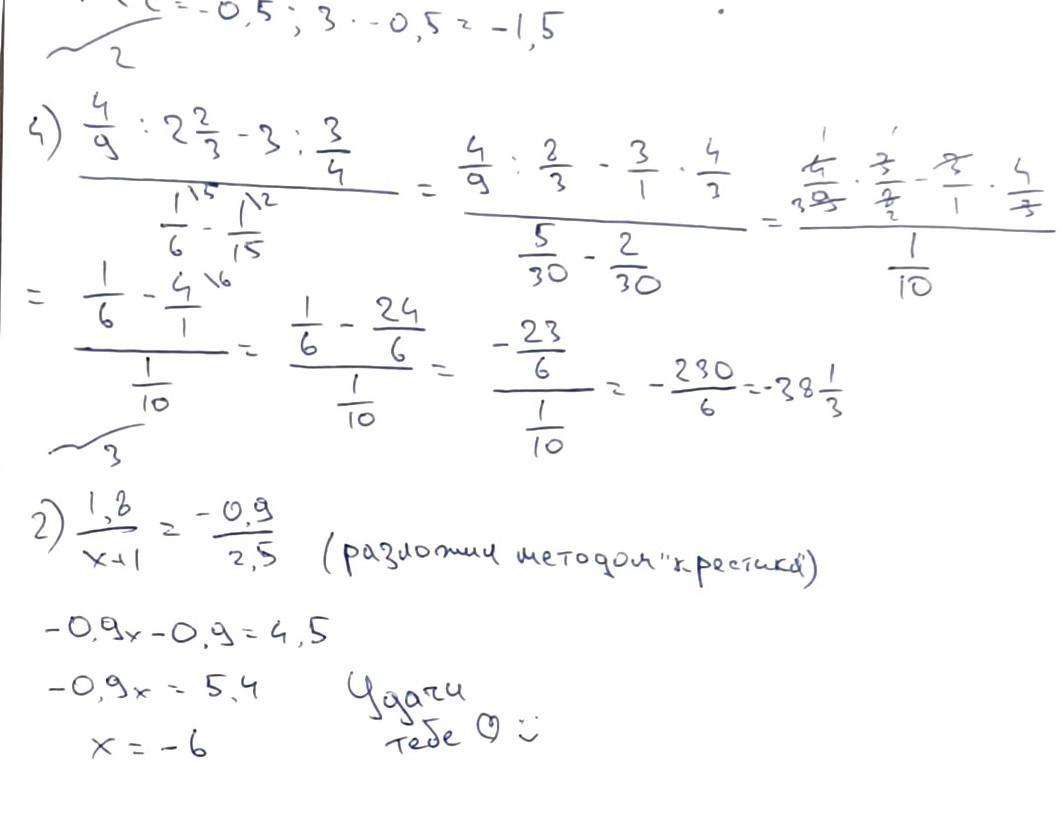 = -0,5 ; 3 · -0,5 = -1,5
2
4) (4/9 : 2 2/3 - 3 : 3/4) / (1/6 \5 - 1/15 \2) = (4/9 : 2/3 - 3/1 · 4/3) / (5/30 - 2/30) = (4/9 · 3/2 - 3/1 · 4/3) / (1/10)
= (1/6 - 4/1 \6) / (1/10) = (1/6 - 24/6) / (1/10) = (-23/6) / (1/10) = -230/6 = -38 1/3
3
2) 1,8/(x+1) = -0,9/2,5 (разложим методом "крестика")
-0,9x - 0,9 = 4,5
-0,9x = 5,4 Удачи
x = -6 тебе ♡ :)